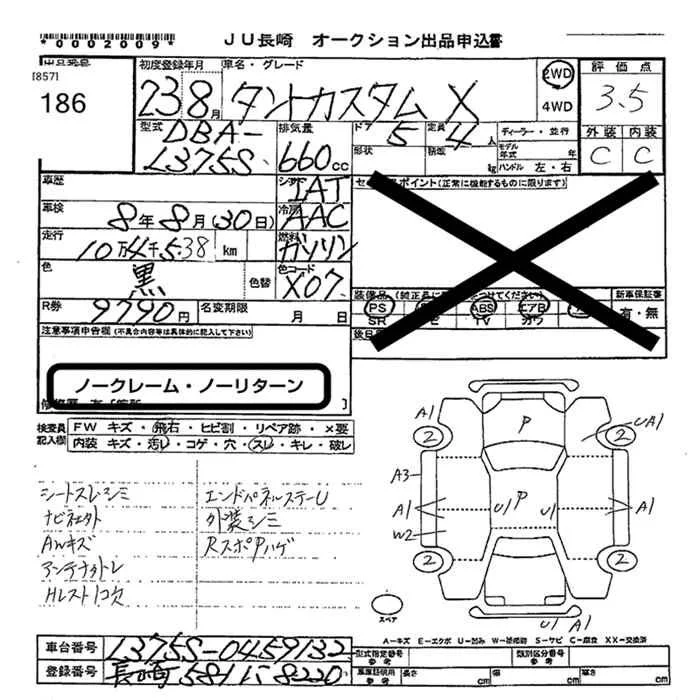 *0002009* JU長崎 オークション出品申込書
[857]
186
初度登録年月 車名・グレード
23 8月 タントカスタム X
2WD
4WD
評価点
3.5
外装 内装
C C
型式 DBA-
L375S
排気量
660cc
ドア 5 定員 4人
形状 積載 kg
ディーラー・並行
モデル年式 年
ハンドル 左・右
車歴
シフト IAT
車検 8年8月(30日)
冷房 AAC
走行 10万4千538km
燃料 ガソリン
色 黒 色替
色コード X07
R券 9790円 名変期限 月 日
セールスポイント(正常に機能するものに限ります)
装備品(純正員に つけてください) 新車保証書
PS ABS エアB 有・無
SR TV カワ
後日
注意事項申告欄(不具合内容等は具体的に記入して下さい)
ノークレーム・ノーリターン
検査員記入欄
FW キズ・飛石・ヒビ割・リペア跡・×要
内装 キズ・汚レ・コゲ・穴・スレ・キレ・破レ
シートスレシミ エンドパネルステーU
ナビ欠 外装シミ
AWキズ RスポPハゲ
アンテナ欠
Hレスト1コ欠
A1 P UA1
2 2
A3
A1 U1 P U1 A1
W2
2 2
スペア
U1 A1
A-キズ E-エクボ U-凹み W-補修跡 S-サビ C-腐食 XX-交換済
車台番号 L375S-0459132
登録番号 長崎 581 に 8220
型式指定番号 参考 類別区分番号 参考
車庫証明用 参考 長さ cm 幅 cm 高さ cm